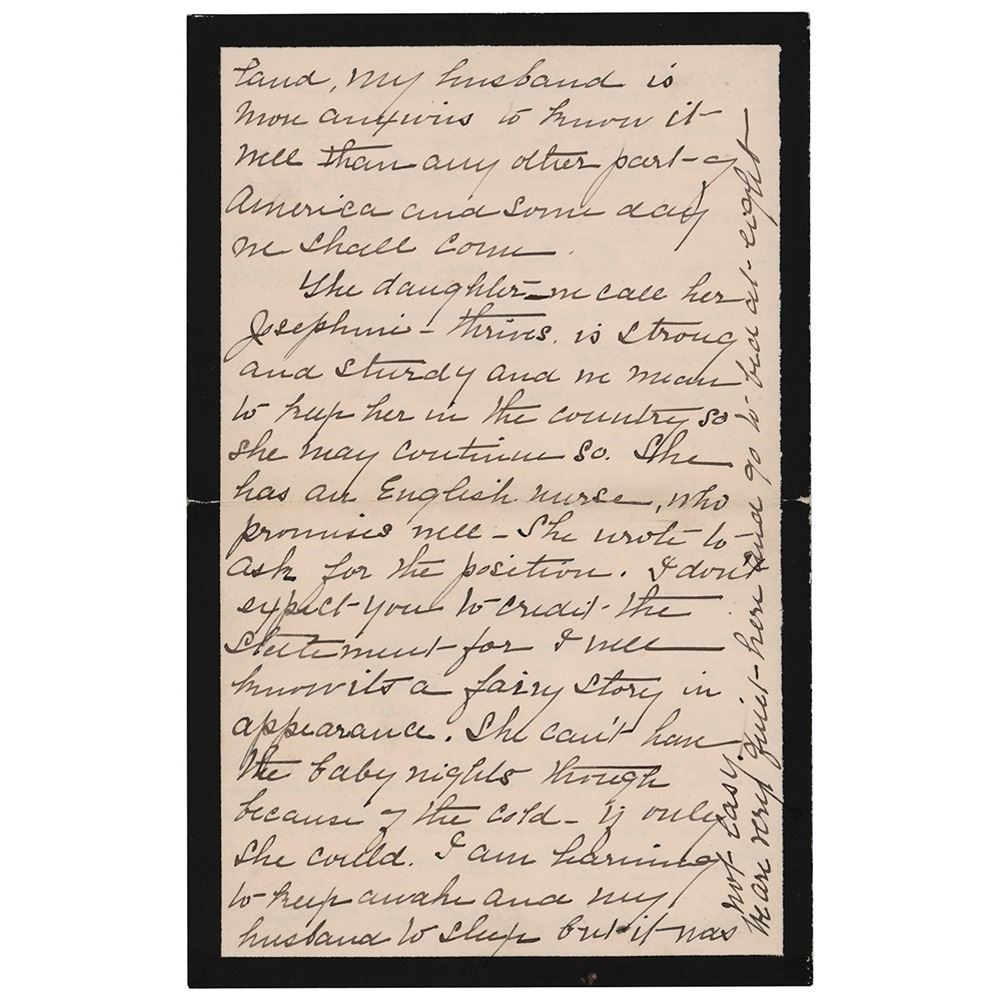 land, my husband is
more anxious to know it
well than any other part of
America and some day
we shall come.
The daughter - we call her
Josephine - thrives, is strong
and sturdy and we mean
to keep her in the country so
she may continue so. She
has an English nurse, who
promises well - She wrote to
ask for the position. I don't
expect you to credit the
statement for I well
know its a fairy story in
appearance. She can't have
the baby nights though
because of the cold - if only
she could. I am learning
to keep awake and my
husband to sleep but it was
not easy.
We are very quiet here and go to bed at eight